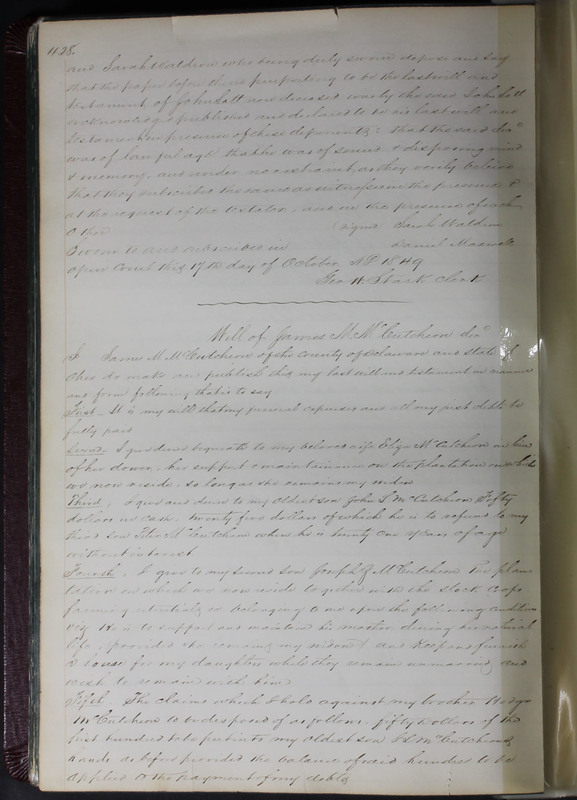 428.
and Sarah Waldron who being duly sworn depose and say
that the paper before them purporting to be the last will and
testament of John Lott now deceased was by the said John Lott
acknowledged published and declared to be his last will and
Testament in presence of these deponents: that the said decd
was of lawful age that he was of sound & disposing mind
& memory. and under no restraint as they verily believe
that they subscribed the same as witnesses in the presence &
at the request of the testator. and in the presence of each
other
(signed Sarah Waldron
Sworn to and subscribed in Daniel
open Court this 17th day of October AD 1849
Geo H Stark Clerk
Will of James M. McCutcheon Decd
I James M. McCutcheon of the County of Delaware and State of
Ohio do make and publish this my last will and testament in manner
and form following that is to say
First. It is my will that my funeral expenses and all my just debts be
fully paid
Second. I give devise & bequeath to my beloved wife Eliza McCutcheon in lieu
of her dower. her support & maintainance on the plantation on which
we now reside. so long as she remains my widow
Third, I give and devise to my oldest son John S McCutcheon Fifty
dollars in cash. twenty five dollars of which he is to refund to my
third son McCutcheon when he is twenty one years of age
without interest
Fourth. I give to my second son Joseph McCutcheon the plan
tation on which we now reside together with the stock crops
farming utentials &c belonging to me upon the following condition
viz He is to support and maintain his mother during her natural
life, provided she remains my widow & and keep and furnish
a house for my daughters while they remain unmarried and
wish to remain with him
Fifth. The claims which I hold against my brother
McCutcheon to be disposed of as follows. fifty dollars of the
first hundred to be put into my oldest son J S McCutcheons
hands as before provided the balance of said hundred to be
applied to the payment of my debts